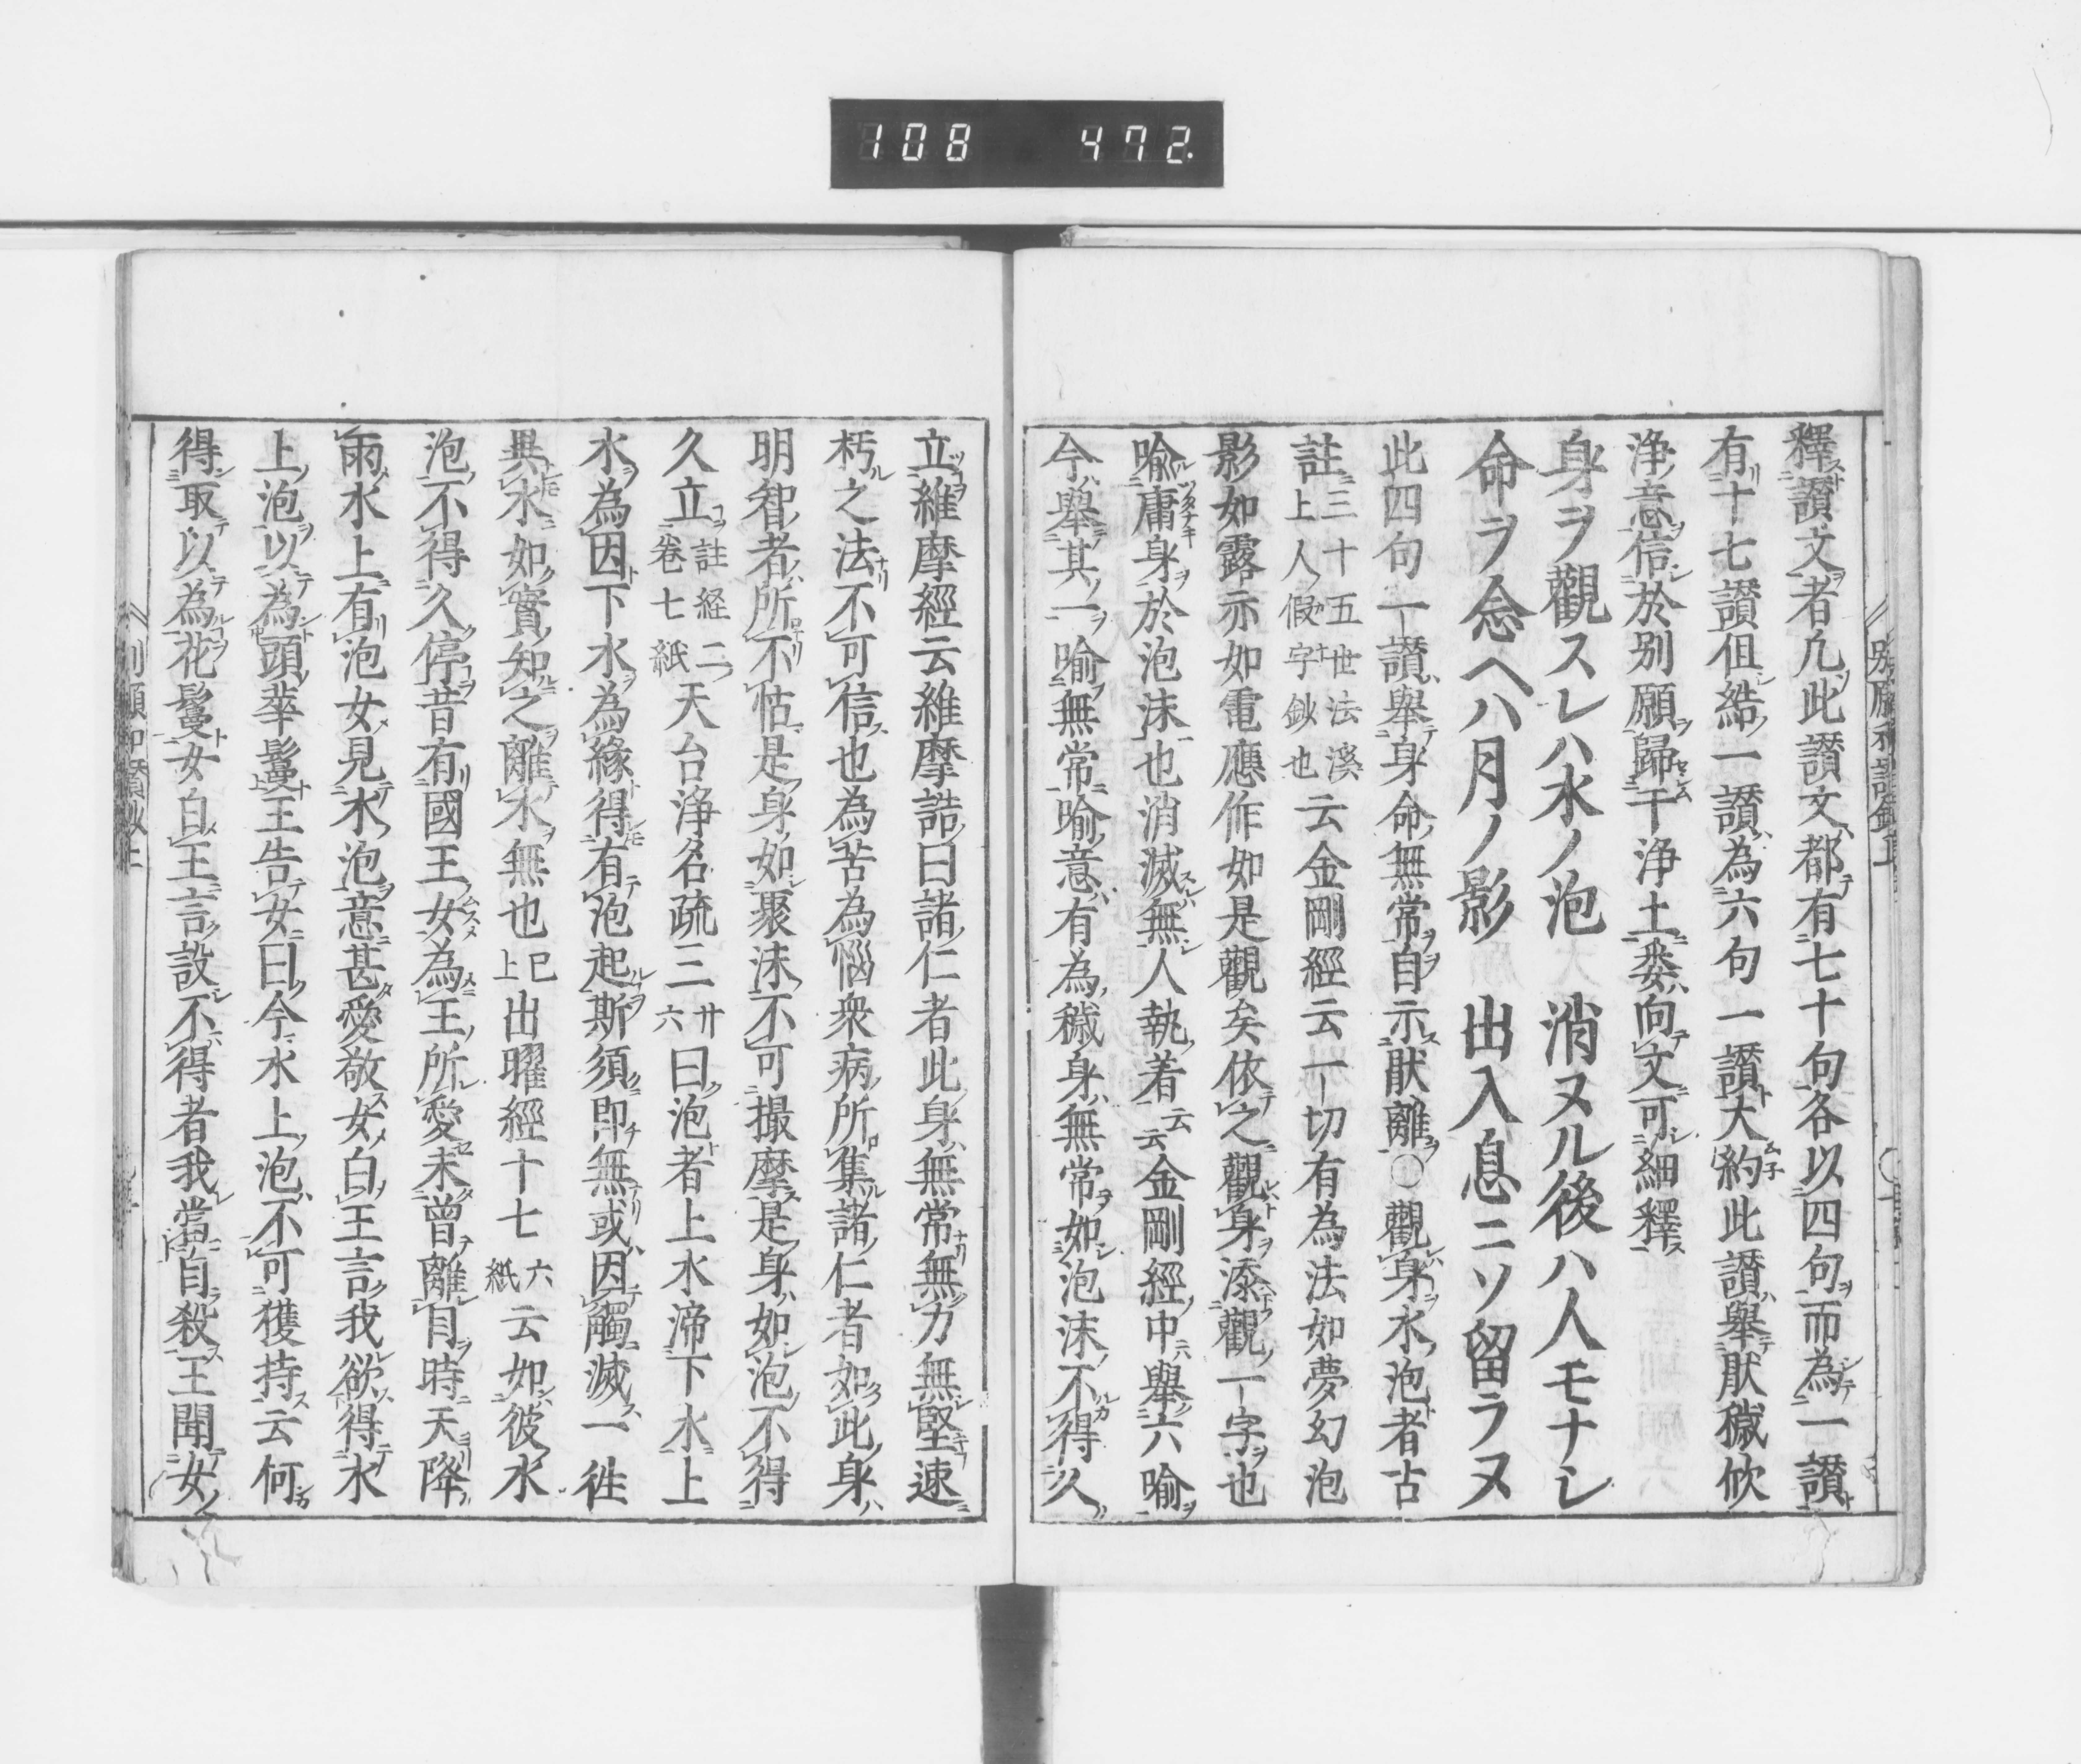 108 472.
釋讃文者凡此讃文都有七十句各以四句而為一讃
有十七讃但結一讃為六句一讃大約此讃舉猒穢忻
浄意信於別願歸干浄土委向文可細釋
身ヲ觀スレハ水ノ泡 消ヌル後ハ人モナシ
命ヲ念ヘハ月ノ影 出入息ニソ留ラヌ
此四句一讃舉身命無常自示猒離○觀身水泡者古
註三十五世法溪上人假字鈔也云金剛經云一切有為法如夢幻泡
影如露亦如電應作如是觀矣依之觀身添觀一字也
喩庸身於泡沫也消滅無人執着云云金剛經中舉六喩
今舉其一喩無常喩意有為穢身無常如泡沫不得久
立維摩經云維摩詰曰諸仁者此身無常無力無堅速
朽之法不可信也為苦為惱衆病所集諸仁者如此身
明智者所不怙是身如聚沫不可撮摩是身如泡不得
久立註経二卷七紙天台浄名疏三廿六曰泡者上水渧下水上
水為因下水為緣得有泡起斯須即無或因觸滅一徃
異水如實知之離水無也已上出曜經十七六紙云如彼水
泡不得久停昔有國王女為王所愛未曾離目時天降
雨水上有泡女見水泡意甚愛敬女白王言我欲得水
上泡以為頭華鬘王告女曰今水上泡不可獲持云何
得取以為花鬘女白王言設不得者我當自殺王聞女